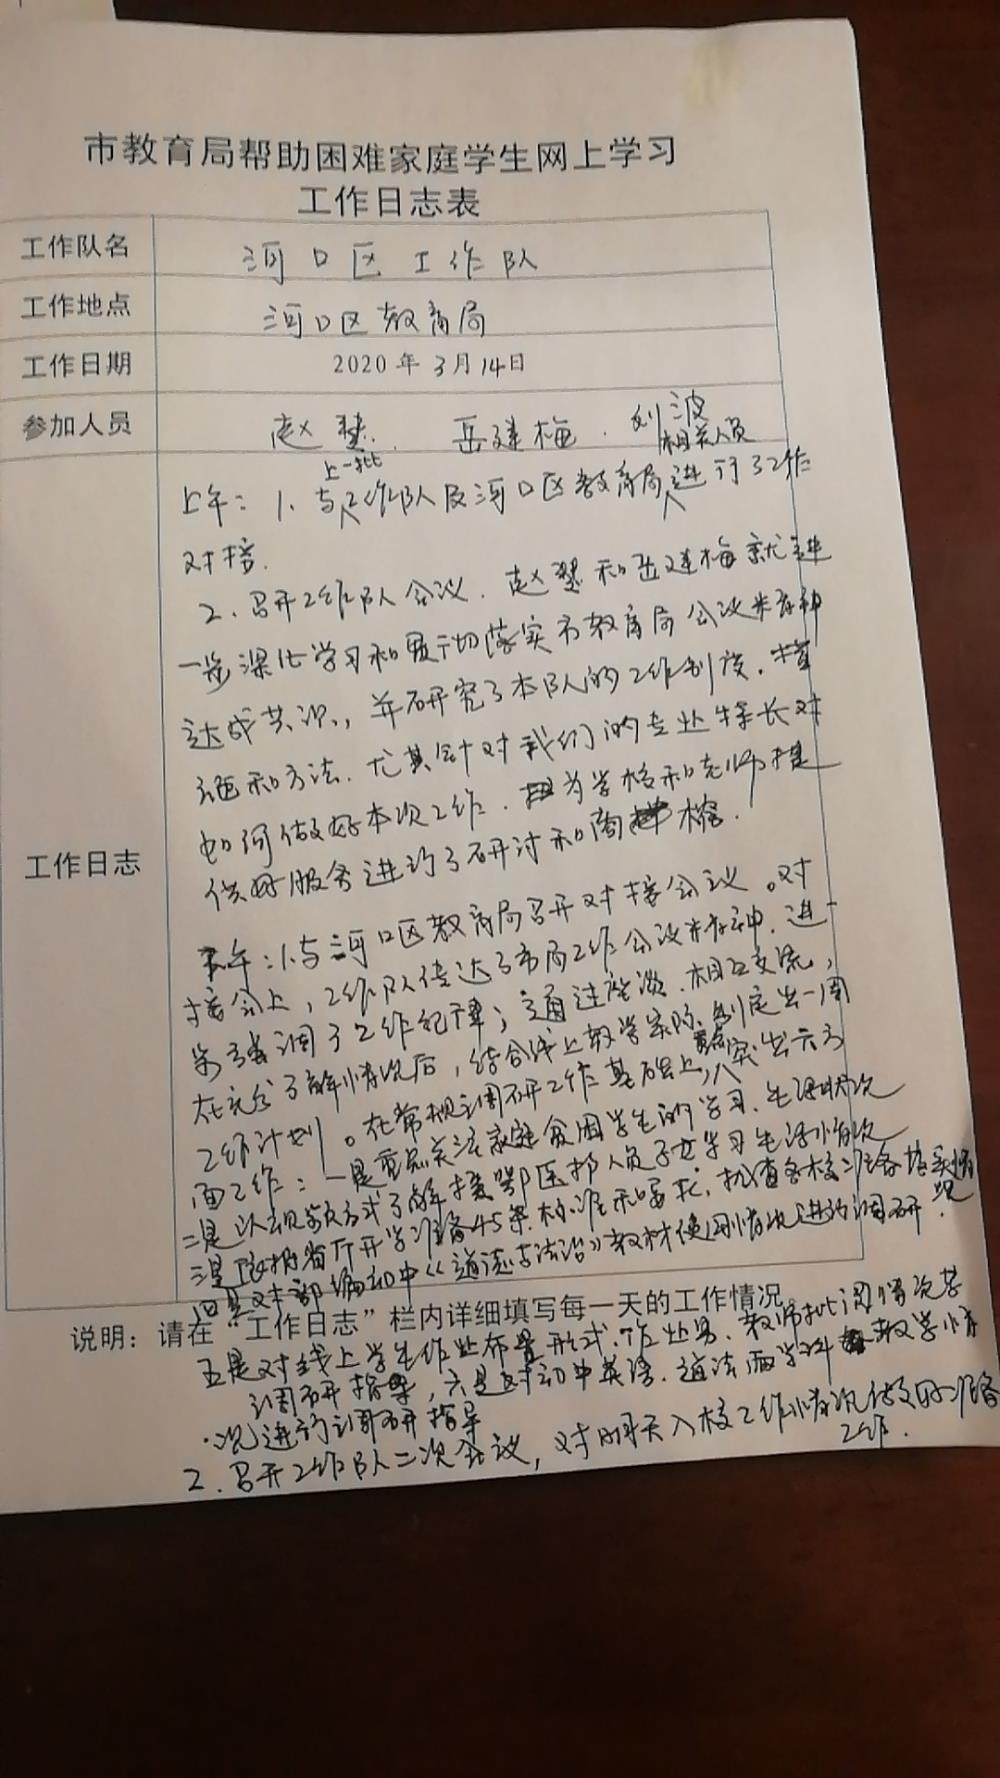 市教育局帮助困难家庭学生网上学习
工作日志表
工作队名 河口区工作队
工作地点 河口区教育局
工作日期 2020年3月14日
参加人员 赵慧、岳建梅、刘波
相关人员
上一批
上午：1、与工作队及河口区教育局进行了工作
对接.
2、召开工作队会议、赵慧和岳建梅就进
一步深化学习和 切落实市教育局会议精神
达成共识，并研究了本队的工作制度、措
施和方法、尤其针对我们的专业特长对
如何做好本次工作、为学校和老师提
供好服务进行了研讨和商榷.
工作日志
下午：1、与河口区教育局召开对接会议。对
接会上，工作队传达了市局工作会议精神、进一
步强调了工作纪律；通过座谈、相互交流，
在充分了解情况后，结合线上教学实际、制定出一周
工作计划。在常规调研工作基础上，突出六方
面工作：一是重点关注家庭贫困学生的学习、生活状况
二是以 方式了解援鄂医护人员子女学习生活情况
三是依据省厅开学准备45条标准和 ，抽查各校准备落实情况
四是对部编初中《道德与法治》教材使用情况进行调研.
说明：请在“工作日志”栏内详细填写每一天的工作情况。
五是对线上学生作业布置形式、作业量、教师批阅情况等
调研指导，六是对初中英语、道法两学科教学情
况进行调研指导
2、召开工作队二次会议，对明天入校工作情况做好准备
工作.